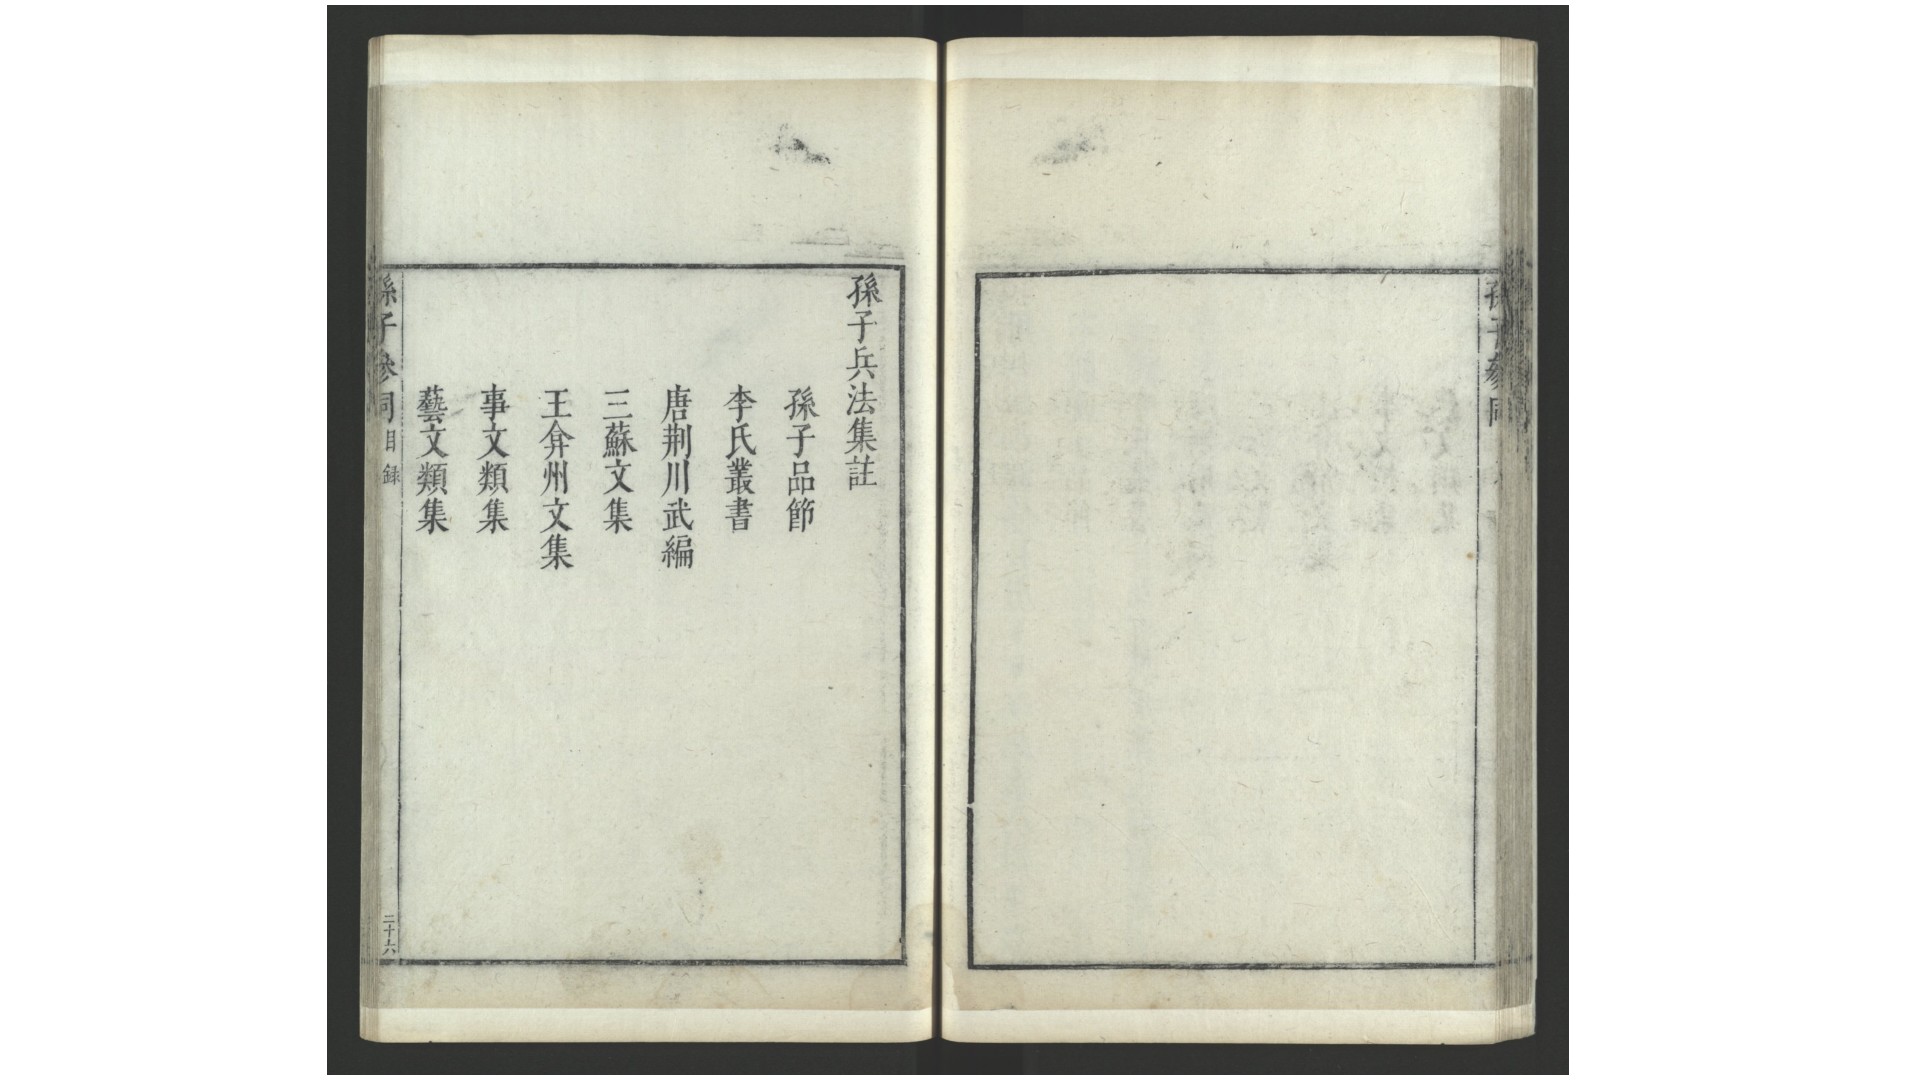 孫子參同
孫子兵法集註
孫子品節
李氏叢書
唐荆川武編
三蘇文集
王弇州文集
事文類集
藝文類集
孫子參同目錄
二十六